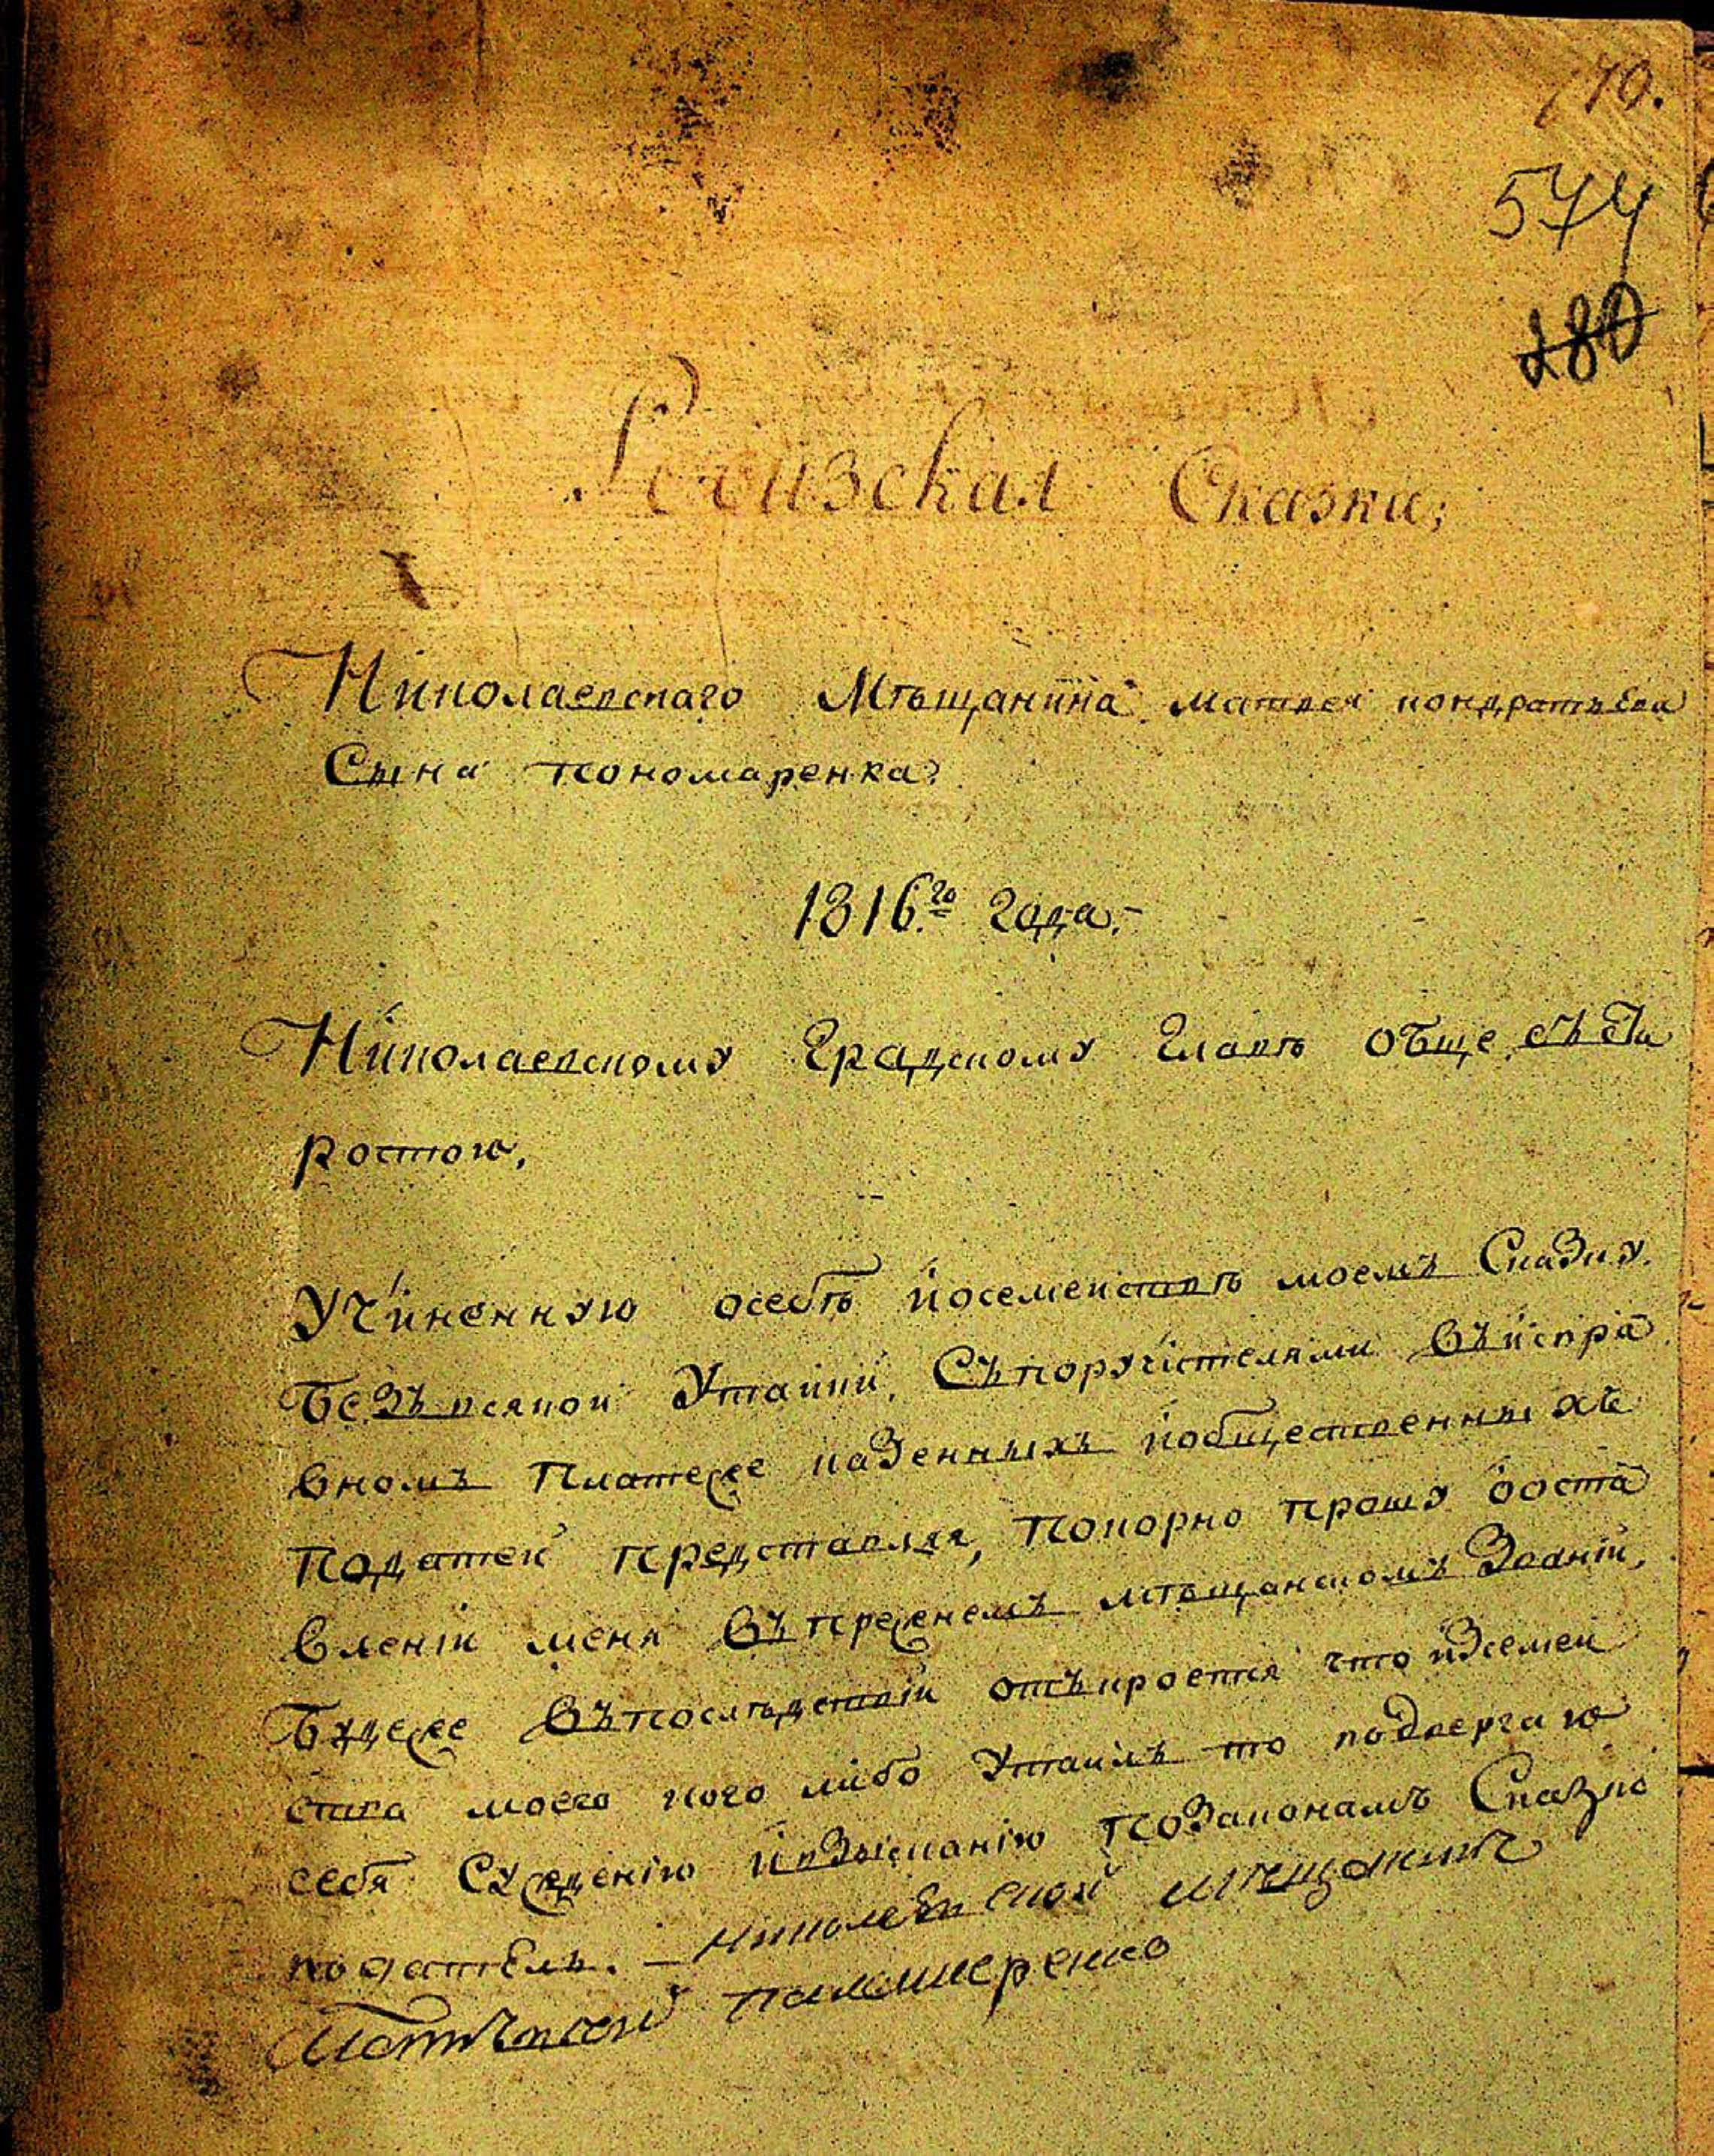 170.
574
280
Ревизская Сказка,
Николаевскаго Мѣщанина матвея кондратьева
Сына пономаренка?
1816.го года.-
Николаевскому Градскому Главѣ обще съ Ста
ростою,
Учиненную осебѣ посемействѣ моемъ Сказку
безъ всякой Утайки, Съ поручителями въ испра
вномъ платеже казенныхъ иобщественныхъ
податей представляя, покорно прошу ооста
вленіи меня въ прежнемъ мѣщанскомъ Званіи,
буде же въ послѣдствіи отъкроется что изсемей
ства моего кого либо Утаилъ то подвергаю
себя Сужденію и взысканію по Законамъ Сказко
податель. - николаевской мещанинъ
Матвѣй пономаренко